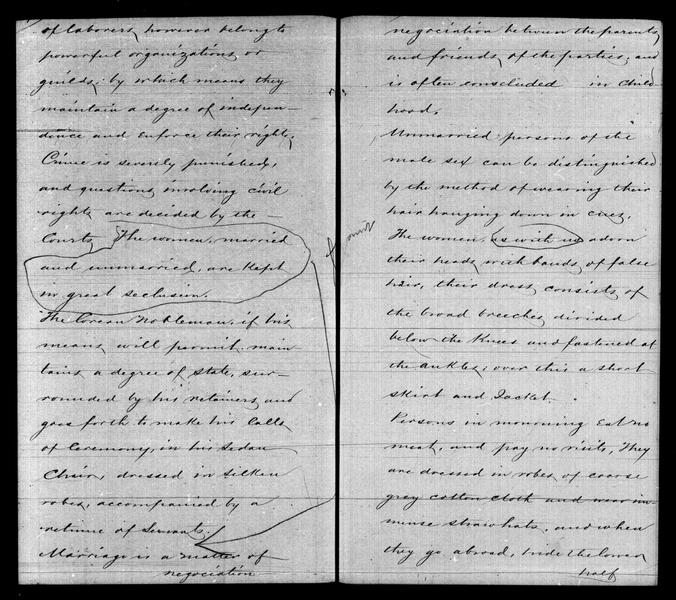 of laborers, however belong to
powerful organizations or
guilds, by which means they
maintain a degree of indepen-
dence and enforce their rights,
Crime is severely punished,
and questions involving civil
rights are decided by the
Courts, The women, married
and unmarried, are kept
in great seclusion.
The Corean Nobleman, if his
means will permit main-
tains a degree of state, sur-
rounded by his retainers, and
goes forth to make his Calls
of Ceremony, in his Sedan
Chair, dressed in silken
robes, accompanied by a
retinue of Servants.
Marriage is a matter of
negociation
negociation between the parents
and friends, of the parties, and
is often conscluded in child
hood.
Unmarried persons of the
male sex can be distinguished
by the method of wearing their
hair hanging down in cues.
omit
The women, as with us adorn
their heads with bands of false
hair, their dress consists of
the broad breeches divided
below the Knees and fastened at
the ankles, over this a short
skirt and Jacket.
Persons in mourning Eat no
meat, and pay no visits, They
are dressed in robes of coarse
grey cotton cloth and wear im-
mense straw hats, and when
they go abroad, hide the lower
half